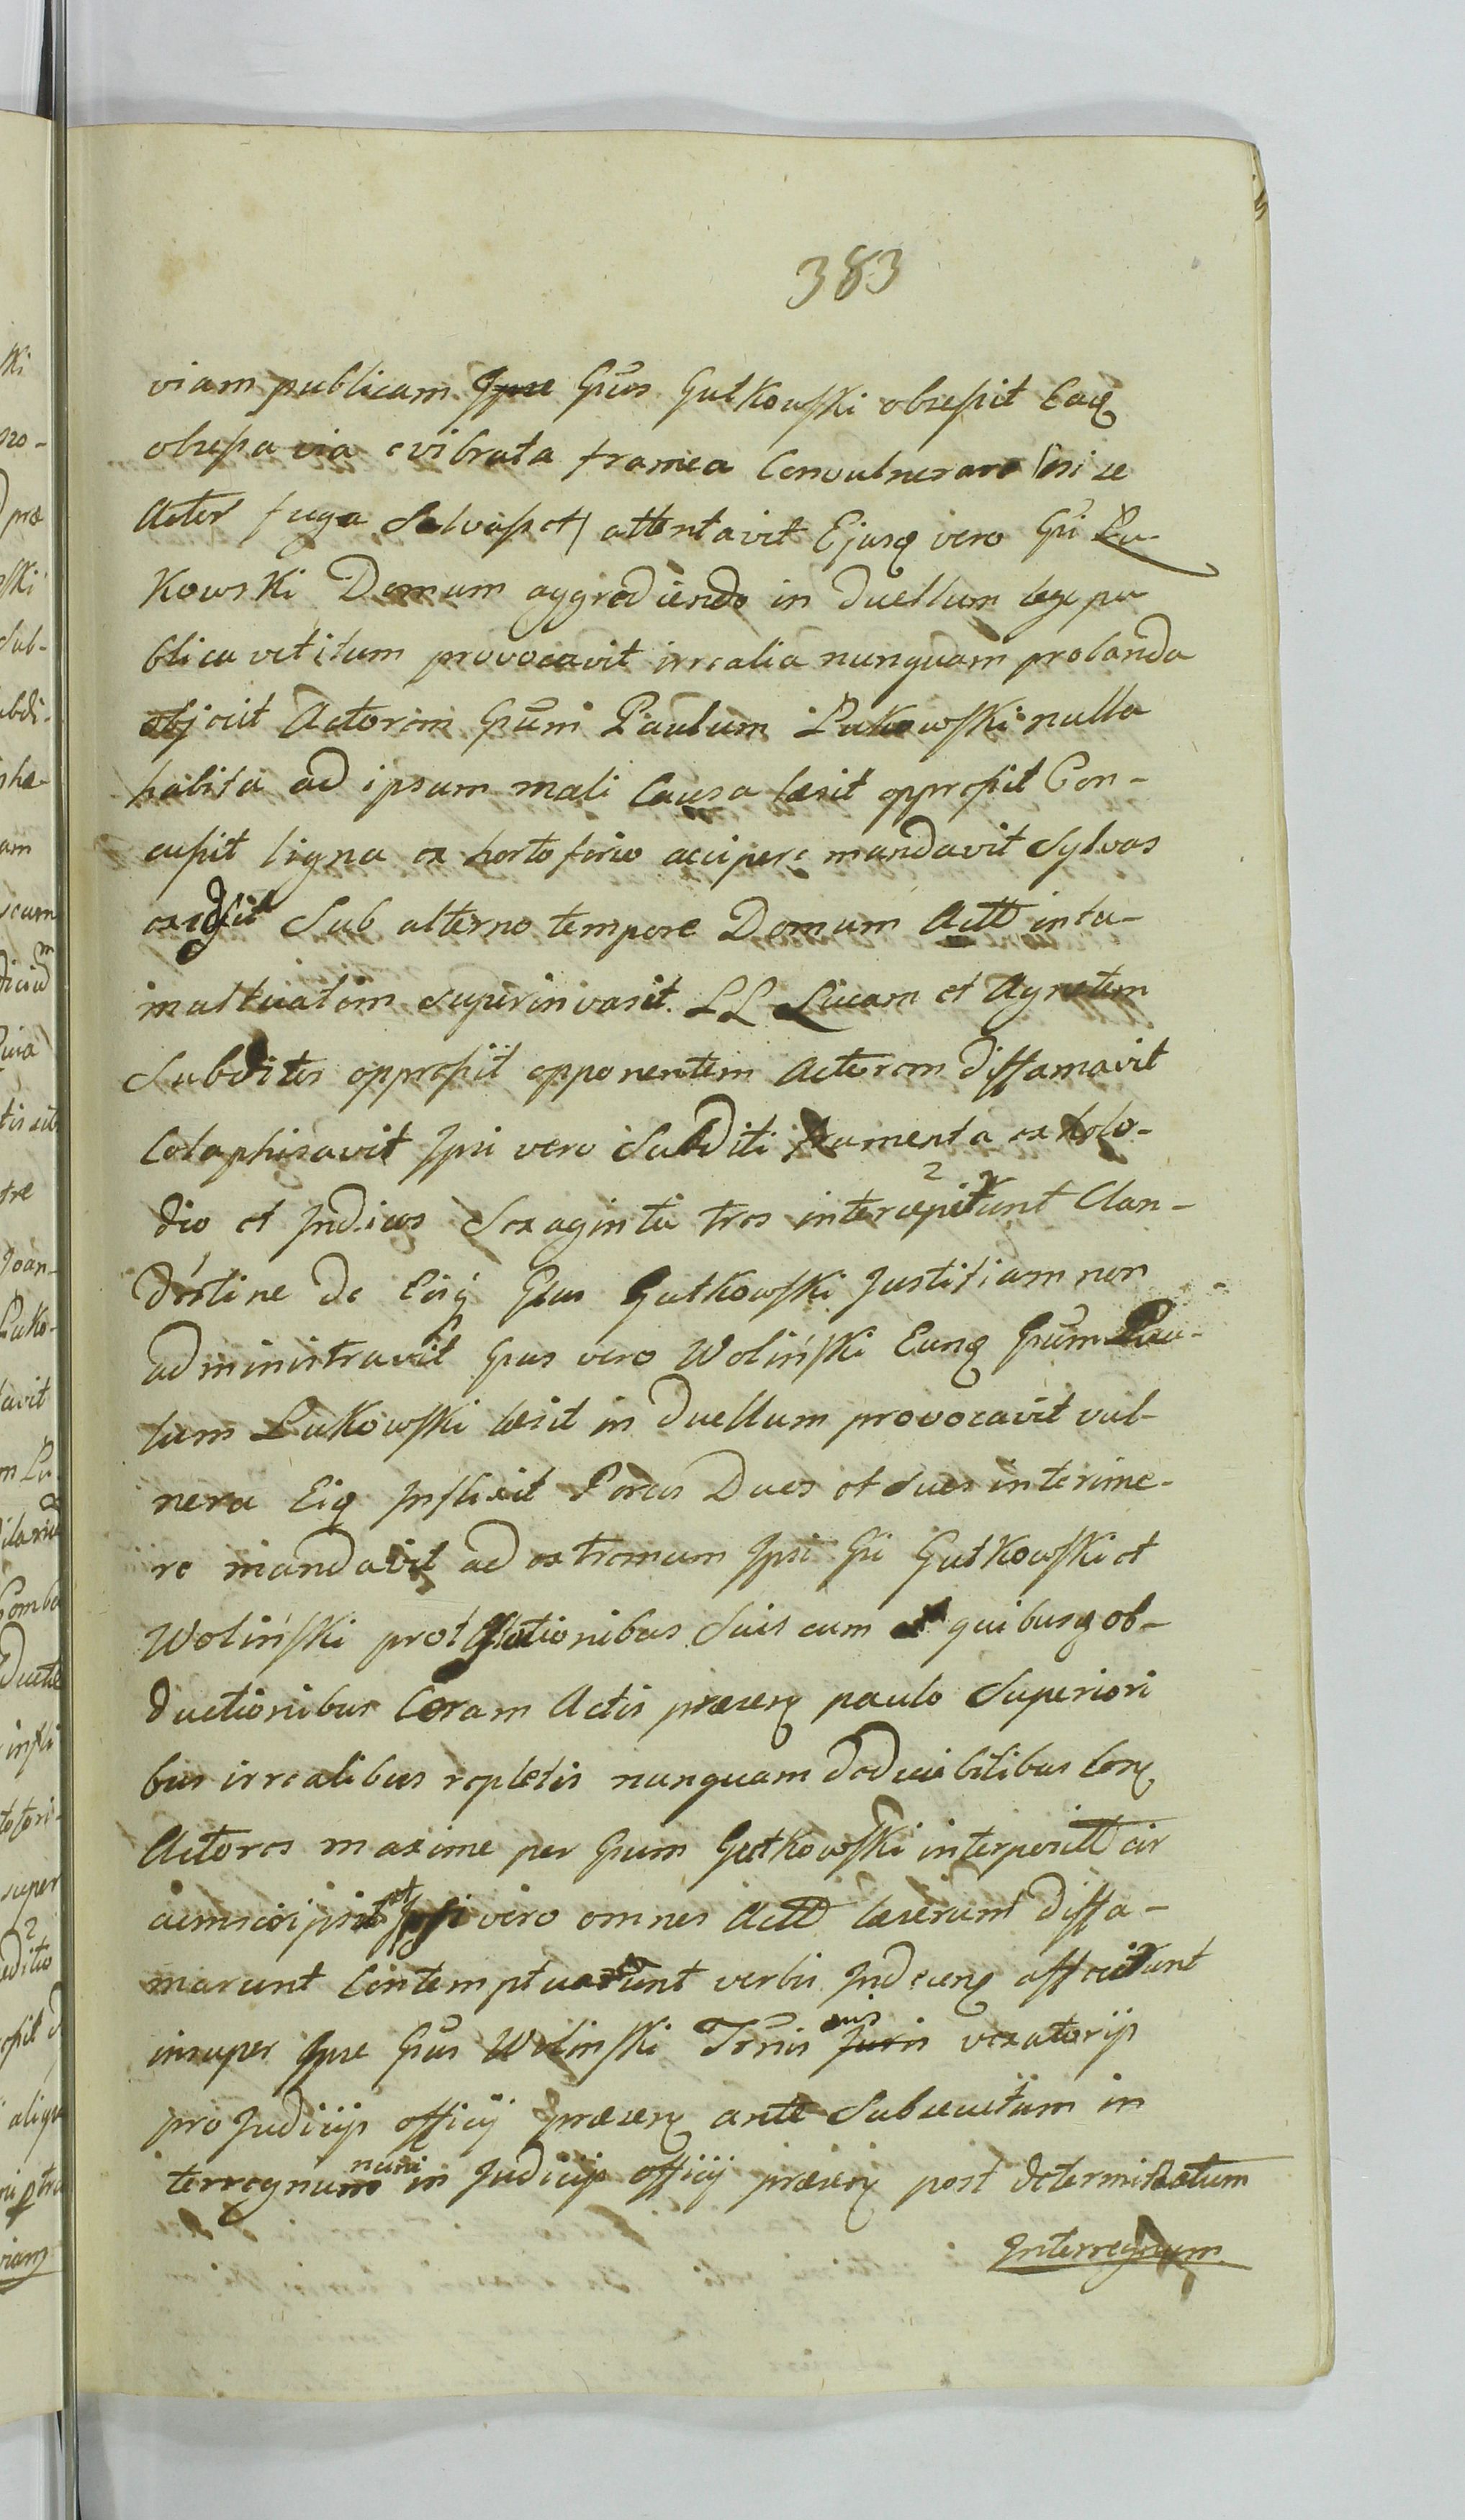 383
viam publicam Ipse Gńus Gutkowski obsessit Eaq
obsessa via evibrata framea Convulnerare /nisi se
Actor fuga Salvasset/ attentavit Ejusq vero Gńi Łu-
kowski Domum aggrediendo in duellum lege pu
blica vetitum provocavit irrealia nunquam probanda
objecit Actorem Gńum Paulum Łukowski nulla
habita ad ipsum mali Causa læsit oppressit Con-
cussit ligna ex horto ferio accipere mandavit Sylvas
Sub alterno tempore Domum Actt intu-
multuatim superinvasit. LL Lucam et Agnetem
Subditos oppressit opponentem Actorem diffamavit
Colaphisavit Ipsi vero Subditi frumenta ex holo-
dio et Indicos Sexaginta tres interceperunt Clan-
destine de Eisq Gńus Gutkowski Justitiam non
administravit Gńus vero Woliński Eunq Gńum Pau-
lum Łukowski læsit in duellum provocavit vul-
nera Eiq Inflixit Porcos Duos et sues interime-
re mandavit ad extremum Ipsi Gńi Gutkowski et
Woliński protestationibus Suis cum quibusq ob-
ductionibus Coram Actis præsen paulo Superiori
bus irrealibus repletis nunquam deducibilibus Con
Actores maxime per Gńum Gutkowski interposítt cir
cumscripsit et Ipsi vero omnes Actt læserunt diffa-
marunt Contemptuarunt verbis Indecen affecerunt
insuper Ipse Gńus Woliński Trnis suis Juris vexatorijs
pro Judicijs officij præsen ante Subsecutum in
terregnum nunc in Judicijs officij præsen post determinatum
Interregnum